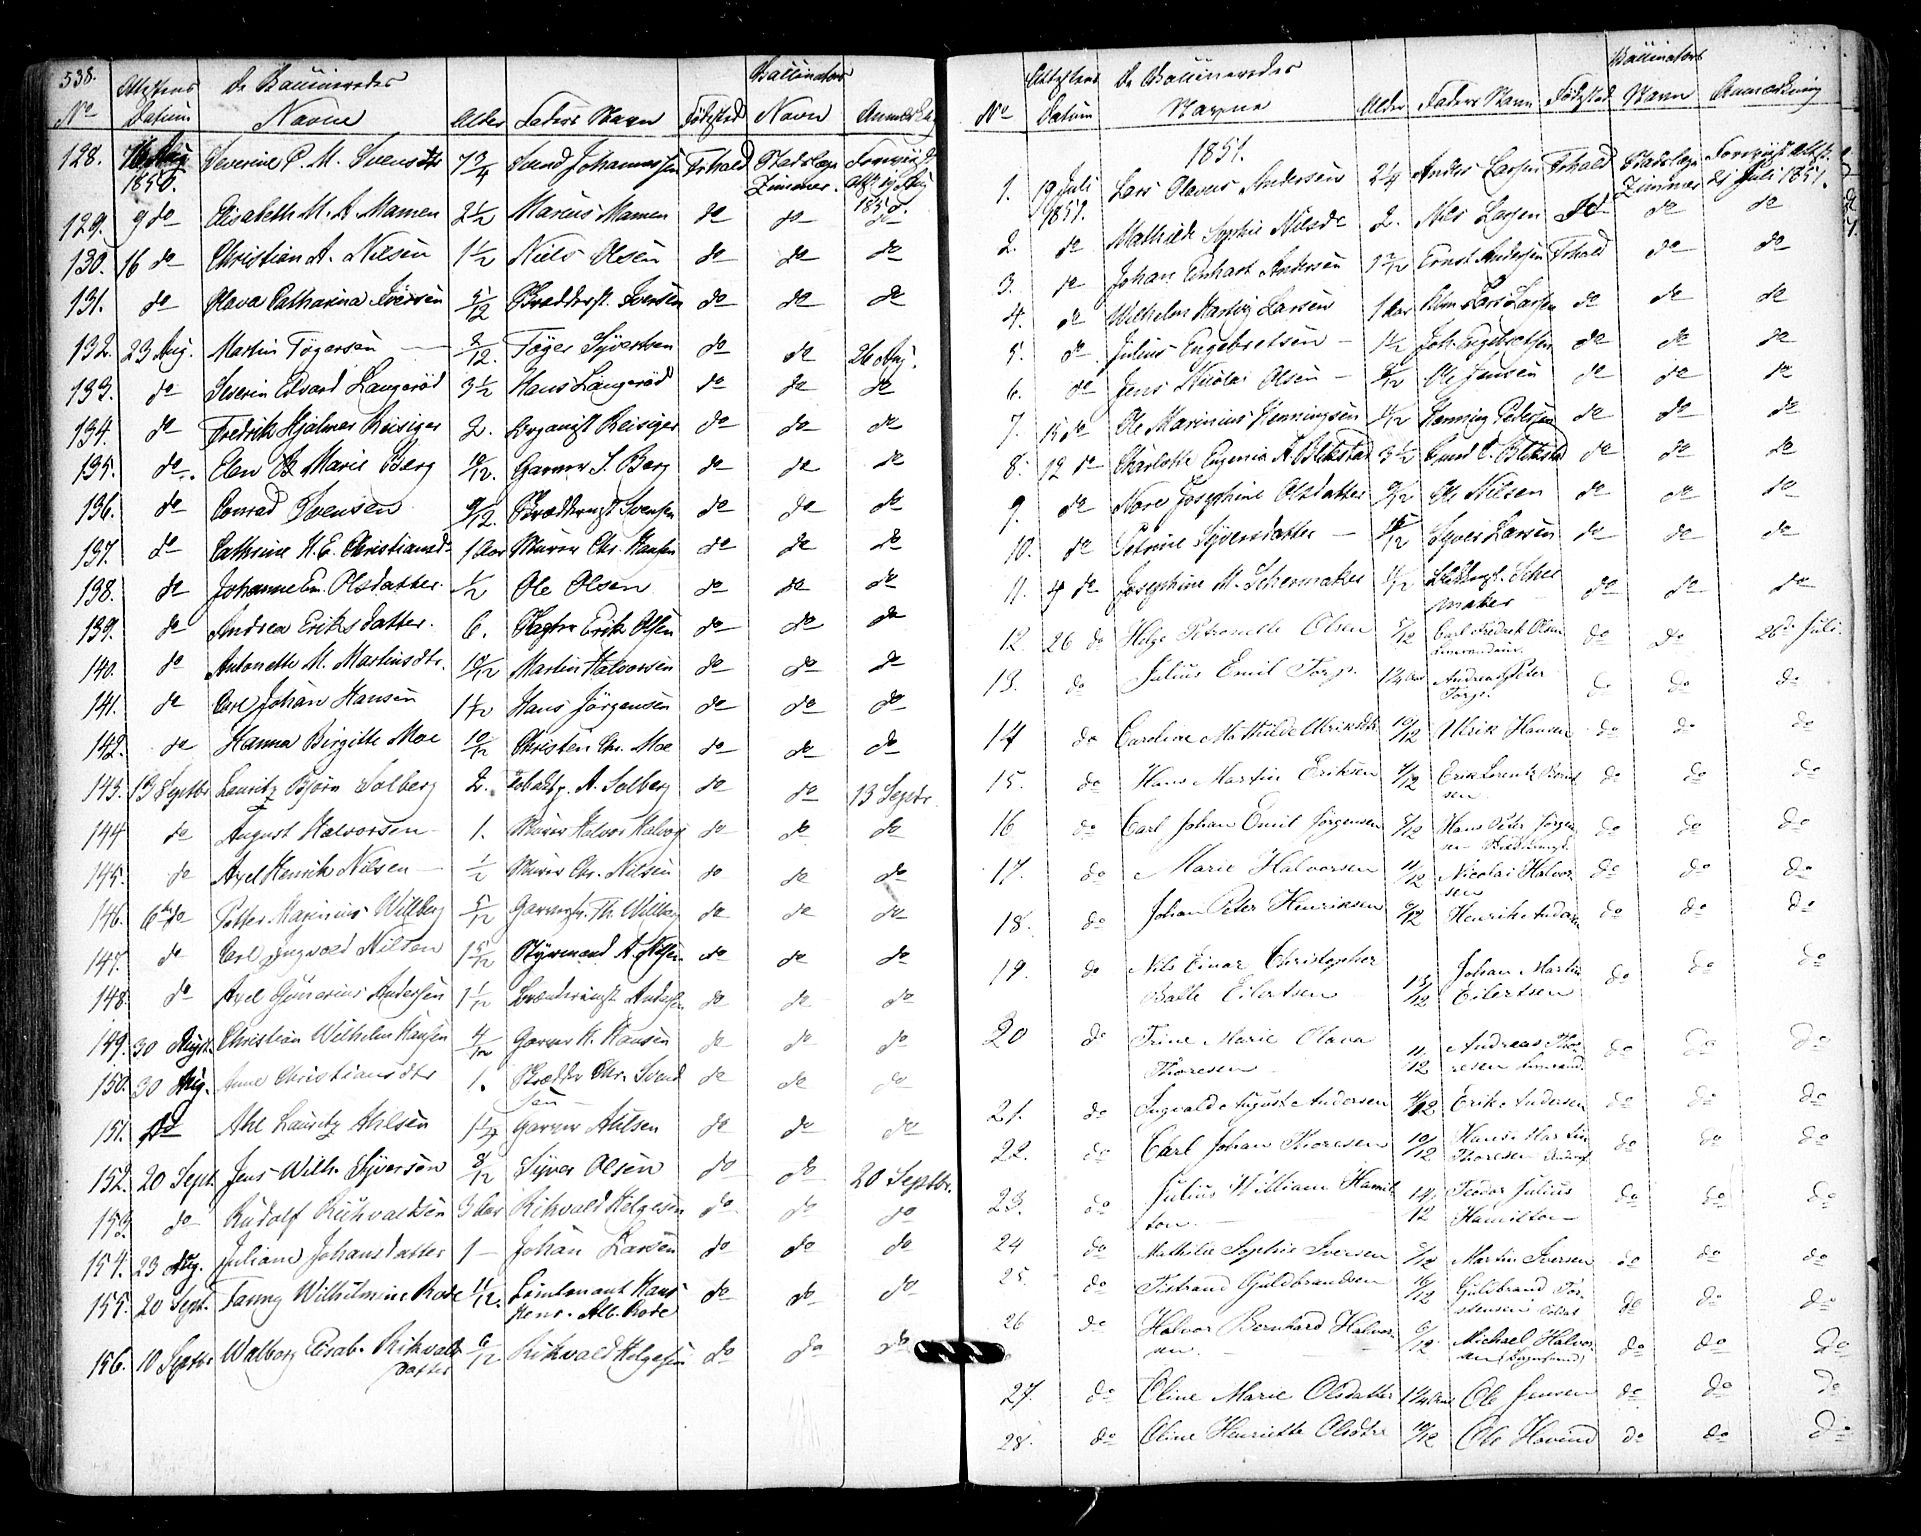 538.
No Attestens Datum De Vaccineredes Navne Alder Faders Navn Fødested Vaccinators Navn Anmærkng
128. 1850. Severine P. M. Svensdtr 7 3/4 Svend Johannessen Frhald Stadslæge Zimmer. 1850.
129. 9 do Elisabeth M. A. Mamen 2 1/2 Marcus Mamen do do do
130. 16 do Christian A. Nilsen 1 1/2 Niels Olsen do do do
131. do Olava Catharina Iversen 5/12 Svensen do do do
132. 23 Aug. Martin Tøgersen — 8/12. Tøger Syvertsen do do 26 Aug.
133. do Severin Edvard Langerød 3 1/2 Hans Langerød do do do
134. do Fredrik Hjalmer Reisiger 2. Organist Reisiger do do do
135. do Elen B. Marie Berg 10/12. Garver S. Berg do do do
136. do Conrad Svensen 9/12. Svensen do do do
137. do Cathrine H. E. Christiansd. 1 Aar Murer Chr. Hansen do do do
138. do Johanne Em. Olsdatter. 1/2 Ole Olsen do do do
139. do Andrea Eriksdatter. 6. Erik Olsen do do do
140. do Antonette M. Martinsdtr. 10/12 Martin Halvorsen do do do
141. do Carl Johan Hansen 1 1/2 Hans Jörgensen do do do
142. do Hanna Birgitte Moe 10/12 Christen Chr. Moe do do do
143. 13 Septbr Lauritz Bjørn Solberg 2. A. Solberg do do 13 Septr.
144 do August Halvorsen 1. Murer Halvor Halvors do do do
145. do Axel Henrik Nilsen — 1/2 Murer Chr. Nilsen do do do
146. 6te do Petter Marinius Willberg 5/12 Th. Wilberg do do do
147. do Carl Ingvald Nilsen 1 5/12 Styrmand A. Nilsen do do do
148 do Axel Andersen 1 1/12 Andersen do do do
149. 30 Augst. Christian Wilhelm Hansen 4/12 Garver H. Hansen do do do
150. 30 Aug. Anne Christiansdtr 1. Chr. Svend do do do
sen
151. do Ahl Lauritz Ahlsen 1 1/2 Garver Ahlsen do do do
152. 20 Sept. Jens Wilh. Syversen 8/12 Syver Olsen do do 20 Septbr.
153. do Rudolf Rikvaldsen 3 Aar Rikvald Helgesen do do do
154. 23 Aug. Juliane Johansdatter 1 — Johan Larsen do do do
155. 20 Sept. Fanny Wilhelmine Rode 11/12. Leintenant Hans do do do
Henr. Alb. Rode
156. 10 Septbr Walborg Elisab. Rikvalds 6/12 Rikvald Helgesen do do do
datter
No Attestens Datum De Vaccineredes Navne Alder Faders Navn Fødested Vaccinators Navn Anmærkning
1851.
1. 19 Juli 1851. Lars Olavus Andersen 2 1/4 Anders Larsen Frhald Stadslæge Zimmer 21 Juli 1851.
2. do Mathilde Sophie Nilsdr 2. Nils Larsen do do do
3. do Johan Andersen 1 7/12 Ernst Andersen Frhald do do
4. do Wilhelm Hartvig Larsen 1 Aar Lars Larsen do do do
5. do Julius Engebretsen — 1 1/2 Joh. Engebretsen do do do
6. do Jens Nicolai Olsen — Ole Jensen do do do
7. 15 do Ole Marinius Henningsen Henning Pedersen do do do
8. 12 do Charlotte Eugenia A. Blekstad 3 1/2 Blekstad do do do
9. do Nore Josephine Olsdatter 9/12 Ole Nilsen do do do
10. do Petrine Syversdatter — Syver Larsen do do do
11. 4 do Josephine M. Schonmaker do do do
maker
12. 26 do Helge Petronelle Olsen 5/12 Carl Fredrik Olsen do do 26de Juli.
13. do Julius Emil Torp. 1 3/4 Aar Andreas Peter do do do
Torp.
14 do Caroline Mathilde Ulriksdtr 10/12 Ulrik Hansen do do do
15. do Hans Martin Eriksen 7/12 Erik Lorentz do do do
sen
16 do Carl Johan Emil Jørgensen 5/12 Hans Peter Jørgen do do do
17. do Marie Halvorsen 11/12 Nicolai Halvor do do do
sen
18. do Johan Peter Henriksen 6/12 Henrik Andersen do do do
19. do Nils Einar Christopher do do do
Balle Eilertsen 13/12 Johan Martin Eilertsen
20 do Trine Marie Olava do do do
Thoresen 11/12 Andreas Tho
resen
21. do Ingvald August Andersen Erik Andersen do do do
22. do Carl Johan Thoresen 10/12 Hans Martin do do do
Thoresen
23. do Julius William Hamil 14/12 Teodor Julius do do do
ton. Hamilton
24 do Mathilde Sophie Iversen 9/12 Martin Iversen do do do
25. do Tistrand Guldbrandsen 16/12 Guldbrand Tor do do do
stensen
26 do Halvor Bernhard Halvor 6/12 Michael Halvor do do do
sen.
27. do Oline Marie Olsdatter 1 3/4 Aar Ole Jensen do do do
28. do Oline Henriette Olsdtr 10/12 Ole Hovind do do do